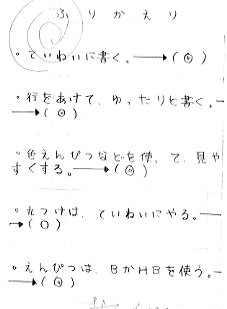 ふりかえり
。ていねいに書く。→(◎)
。行をあけて、ゆったりと書く。―
→(◎)
。色えんぴつなどを使って、見や
すくする。→(◎)
。丸つけは、ていねいにやる。―
→(○)
。えんぴつは、BかHBを使う。―
→(◎)